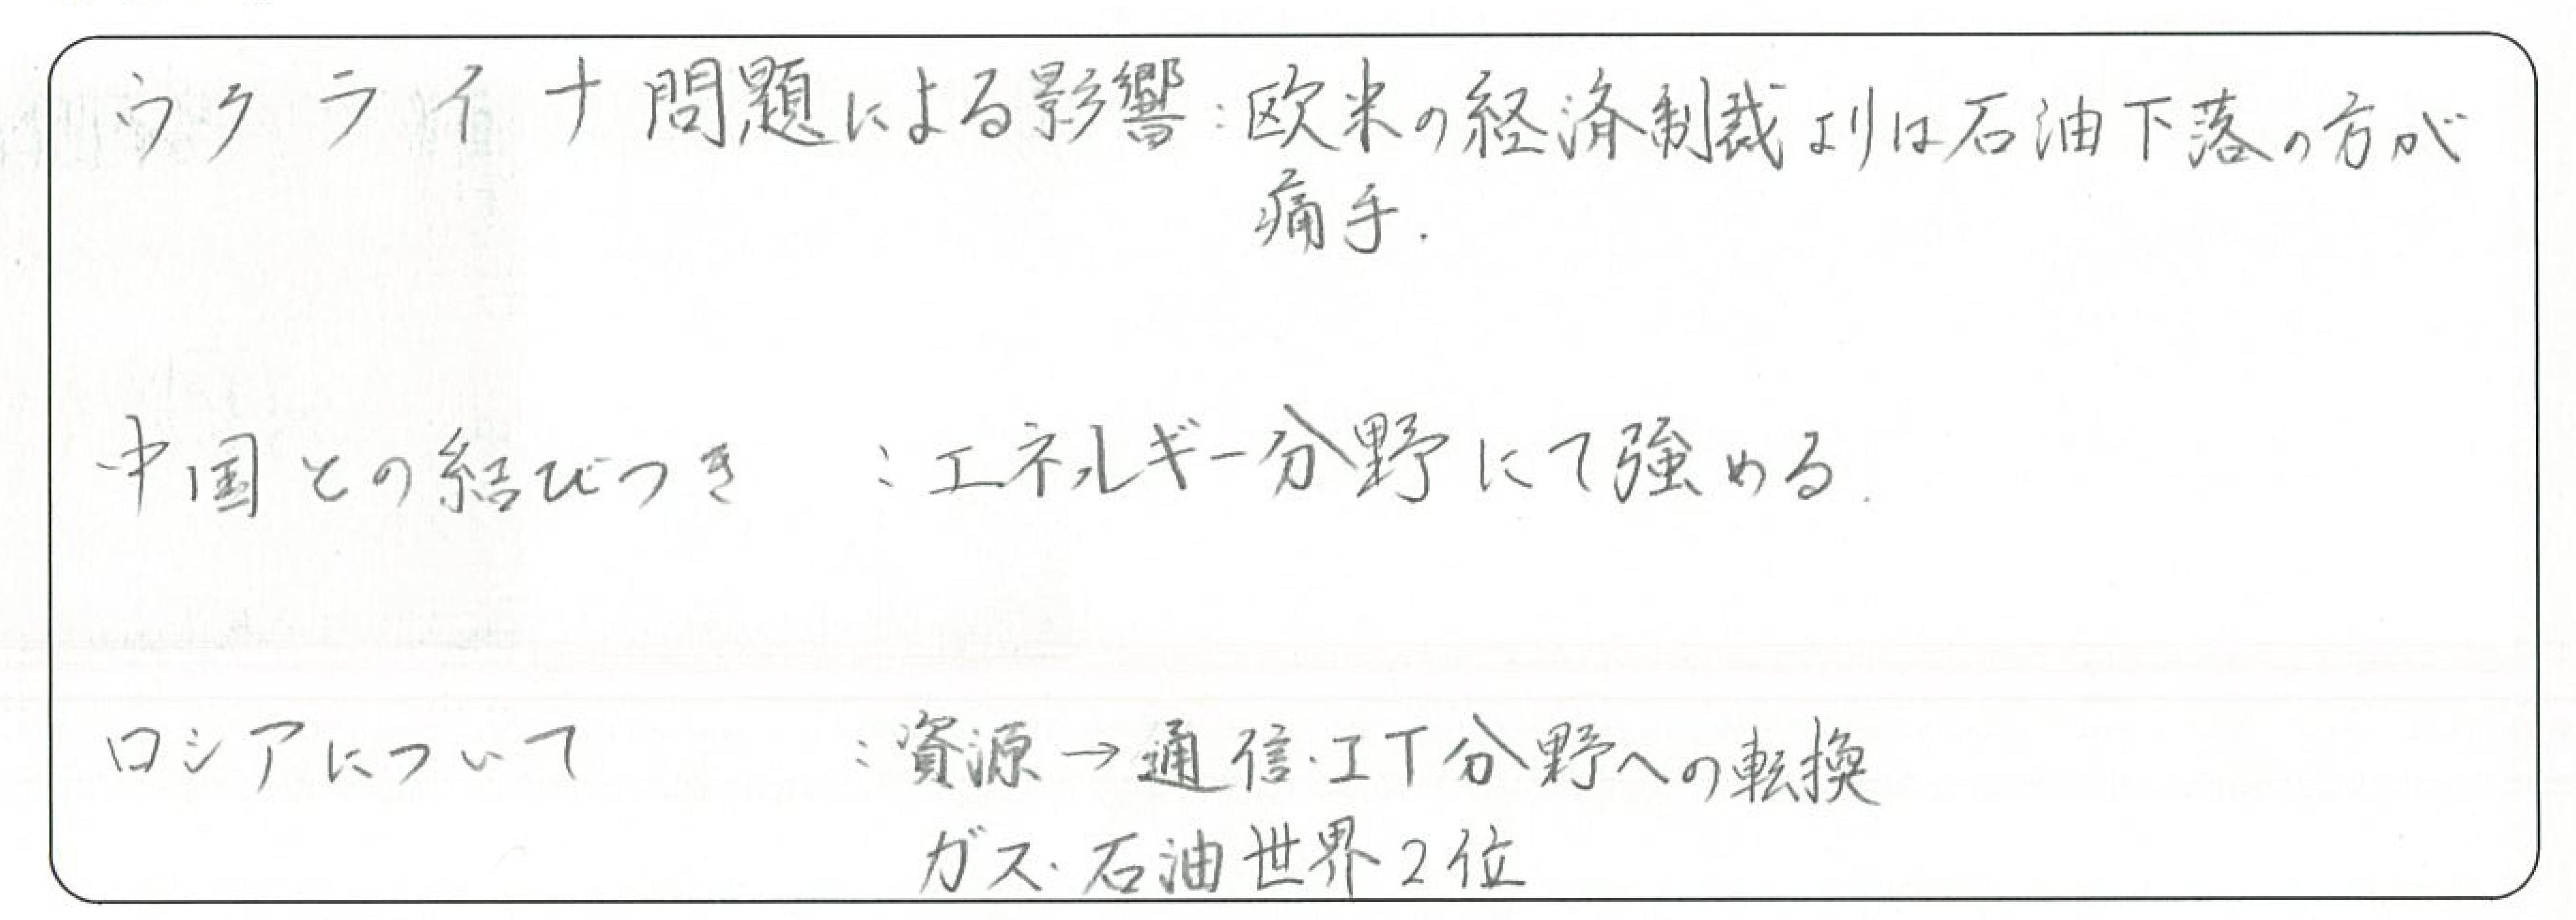 ウクライナ問題による影響：欧米の経済制裁よりは石油下落の方が
痛手.
中国との結びつき ：エネルギー分野にて強める.
ロシアについて ：資源→通信・IT分野への転換
ガス・石油世界2位